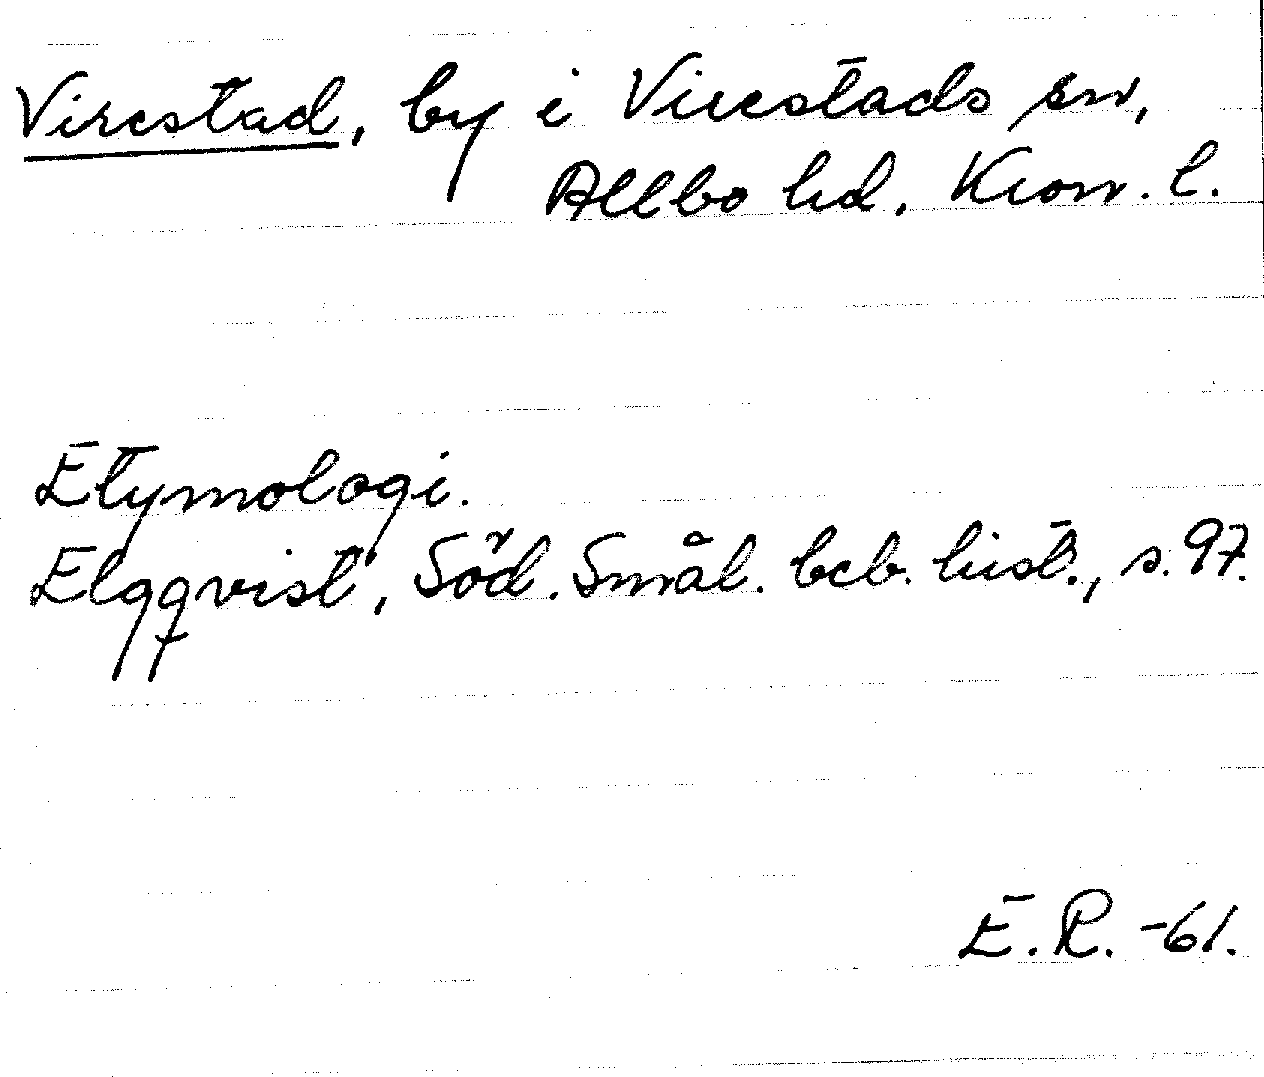 Virestad, by i Virestads sn,
Allbo hd, Kron. l.
Etymologi.
Elgqvist, Söd. Smål. beb. hist., s. 97.
E.R. -61.